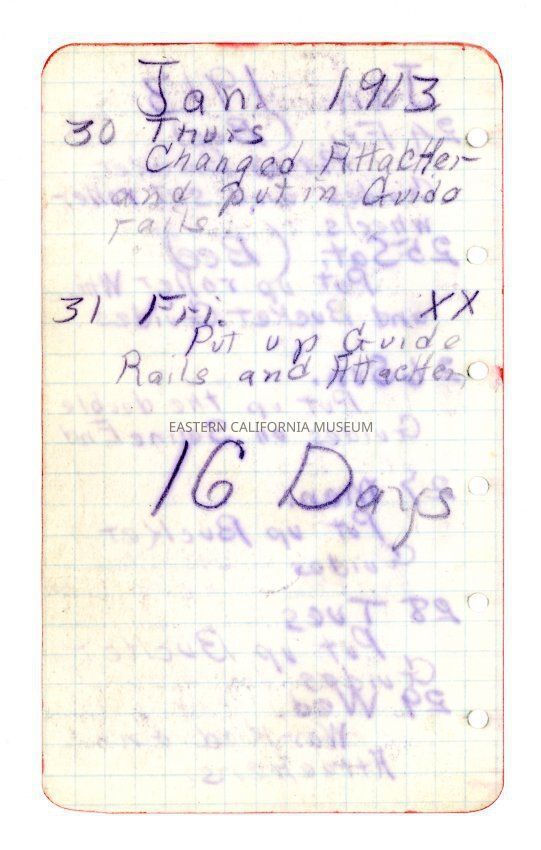 Jan. 1913
30 Thurs
Changed Attatcher
and put in Guide
rails.
31 Fri. XX
Put up Guide
Rails and Attatcher
EASTERN CALIFORNIA MUSEUM
16 Days